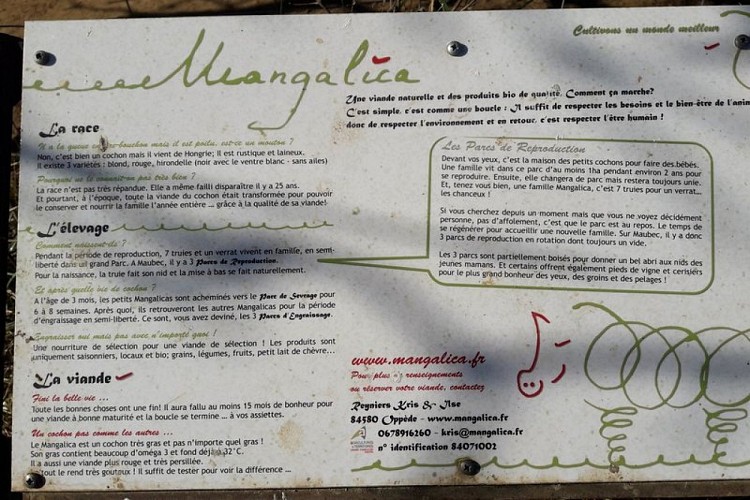 Mangalica
Cultivons un monde meilleur
Une viande naturelle et des produits bio de qualité. Comment ça marche?
C'est simple, c'est comme une boucle : Il suffit de respecter les besoins et le bien-être de l'anim
donc de respecter l'environnement et en retour, c'est respecter l'être humain !
La race
Il a la queue en tire-bouchon mais il est poilu, est-ce un mouton ?
Non, c'est bien un cochon mais il vient de Hongrie; il est rustique et laineux.
Il existe 3 variétés : blond, rouge, hirondelle (noir avec le ventre blanc - sans ailes)
Pourquoi ne le connait-on pas très bien ?
La race n'est pas très répandue. Elle a même failli disparaître il y a 25 ans.
Et pourtant, à l'époque, toute la viande du cochon était transformée pour pouvoir
le conserver et nourrir la famille l'année entière ... grâce à la qualité de sa viande!
L'élevage
Comment naissent-ils ?
Pendant la période de reproduction, 7 truies et un verrat vivent en famille, en semi-
liberté dans un grand Parc. A Maubec, il y a 3 Parcs de Reproduction.
Pour la naissance, la truie fait son nid et la mise à bas se fait naturellement.
Et après quelle vie de cochon ?
A l'âge de 3 mois, les petits Mangalicas sont acheminés vers le Parc de Sevrage pour
6 à 8 semaines. Après quoi, ils retrouveront les autres Mangalicas pour la période
d'engraissage en semi-liberté. Ce sont, vous avez deviné, les 3 Parcs d'Engraissage.
Engraisser oui mais pas avec n'importe quoi !
Une nourriture de sélection pour une viande de sélection ! Les produits sont
uniquement saisonniers, locaux et bio; grains, légumes, fruits, petit lait de chèvre...
La viande
Fini la belle vie ...
Toute les bonnes choses ont une fin! Il aura fallu au moins 15 mois de bonheur pour
une viande à bonne maturité et la boucle se termine ... à vos assiettes.
Un cochon pas comme les autres ...
Le Mangalica est un cochon très gras et pas n'importe quel gras !
Son gras contient beaucoup d'oméga 3 et fond déjà à 32°C.
Il a aussi une viande plus rouge et très persillée.
tout le rend très goûteux ! Il suffit de tester pour voir la différence ...
Les Parcs de Reproduction
Devant vos yeux, c'est la maison des petits cochons pour faire des bébés.
Une famille vit dans ce parc d'au moins 1ha pendant environ 2 ans pour
se reproduire. Ensuite, elle changera de parc mais restera toujours unie.
Et, tenez vous bien, une famille Mangalica, c'est 7 truies pour un verrat...
les chanceux !
Si vous cherchez depuis un moment mais que vous ne voyez décidément
personne, pas d'affolement, c'est que le parc est au repos. Le temps de
se régénérer pour accueillir une nouvelle famille. Sur Maubec, il y a donc
3 parcs de reproduction en rotation dont toujours un vide.
Les 3 parcs sont partiellement boisés pour donner un bel abri aux nids des
jeunes mamans. Et certains offrent également pieds de vigne et cerisiers
pour le plus grand bonheur des yeux, des groins et des pelages !
www.mangalica.fr
Pour plus de renseignements
ou réserver votre viande, contactez
Reyniers Kris & Ilse
84580 Oppède - www.mangalica.fr
0678916260 - kris@mangalica.fr
n° identification 84071002